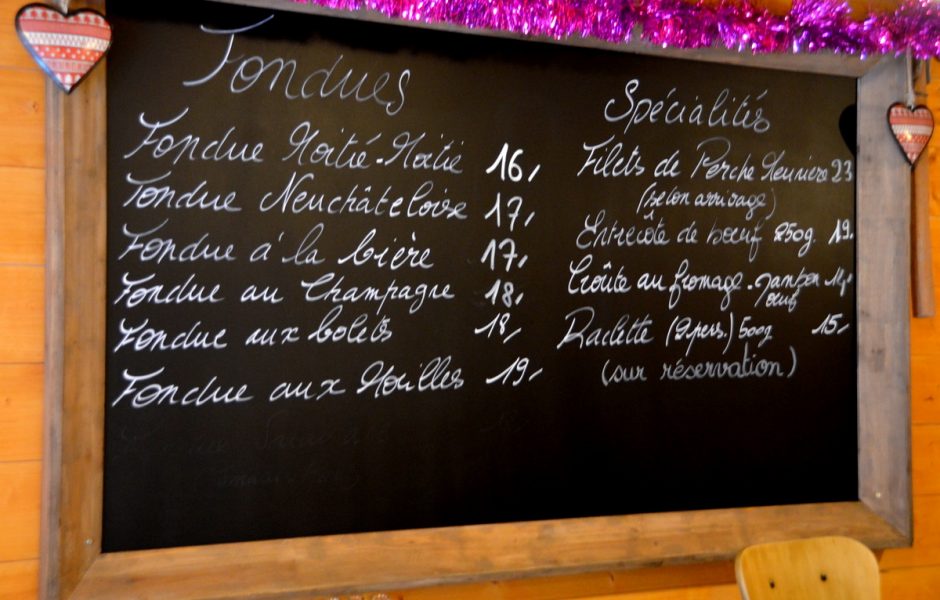 Fondues
Fondue Moitié-Moitié 16,-
Fondue Neuchâteloise 17,-
Fondue à la bière 17,-
Fondue au Champagne 18,-
Fondue aux bolets 18,-
Fondue aux Morilles 19,-
Spécialités
Filets de Perche Meunière 23
(selon arrivage)
Entrecôte de boeuf 250g. 19.
Croûte au fromage - jambon
oeuf
Raclette (2 pers.) 500g 15,-
(sur réservation)